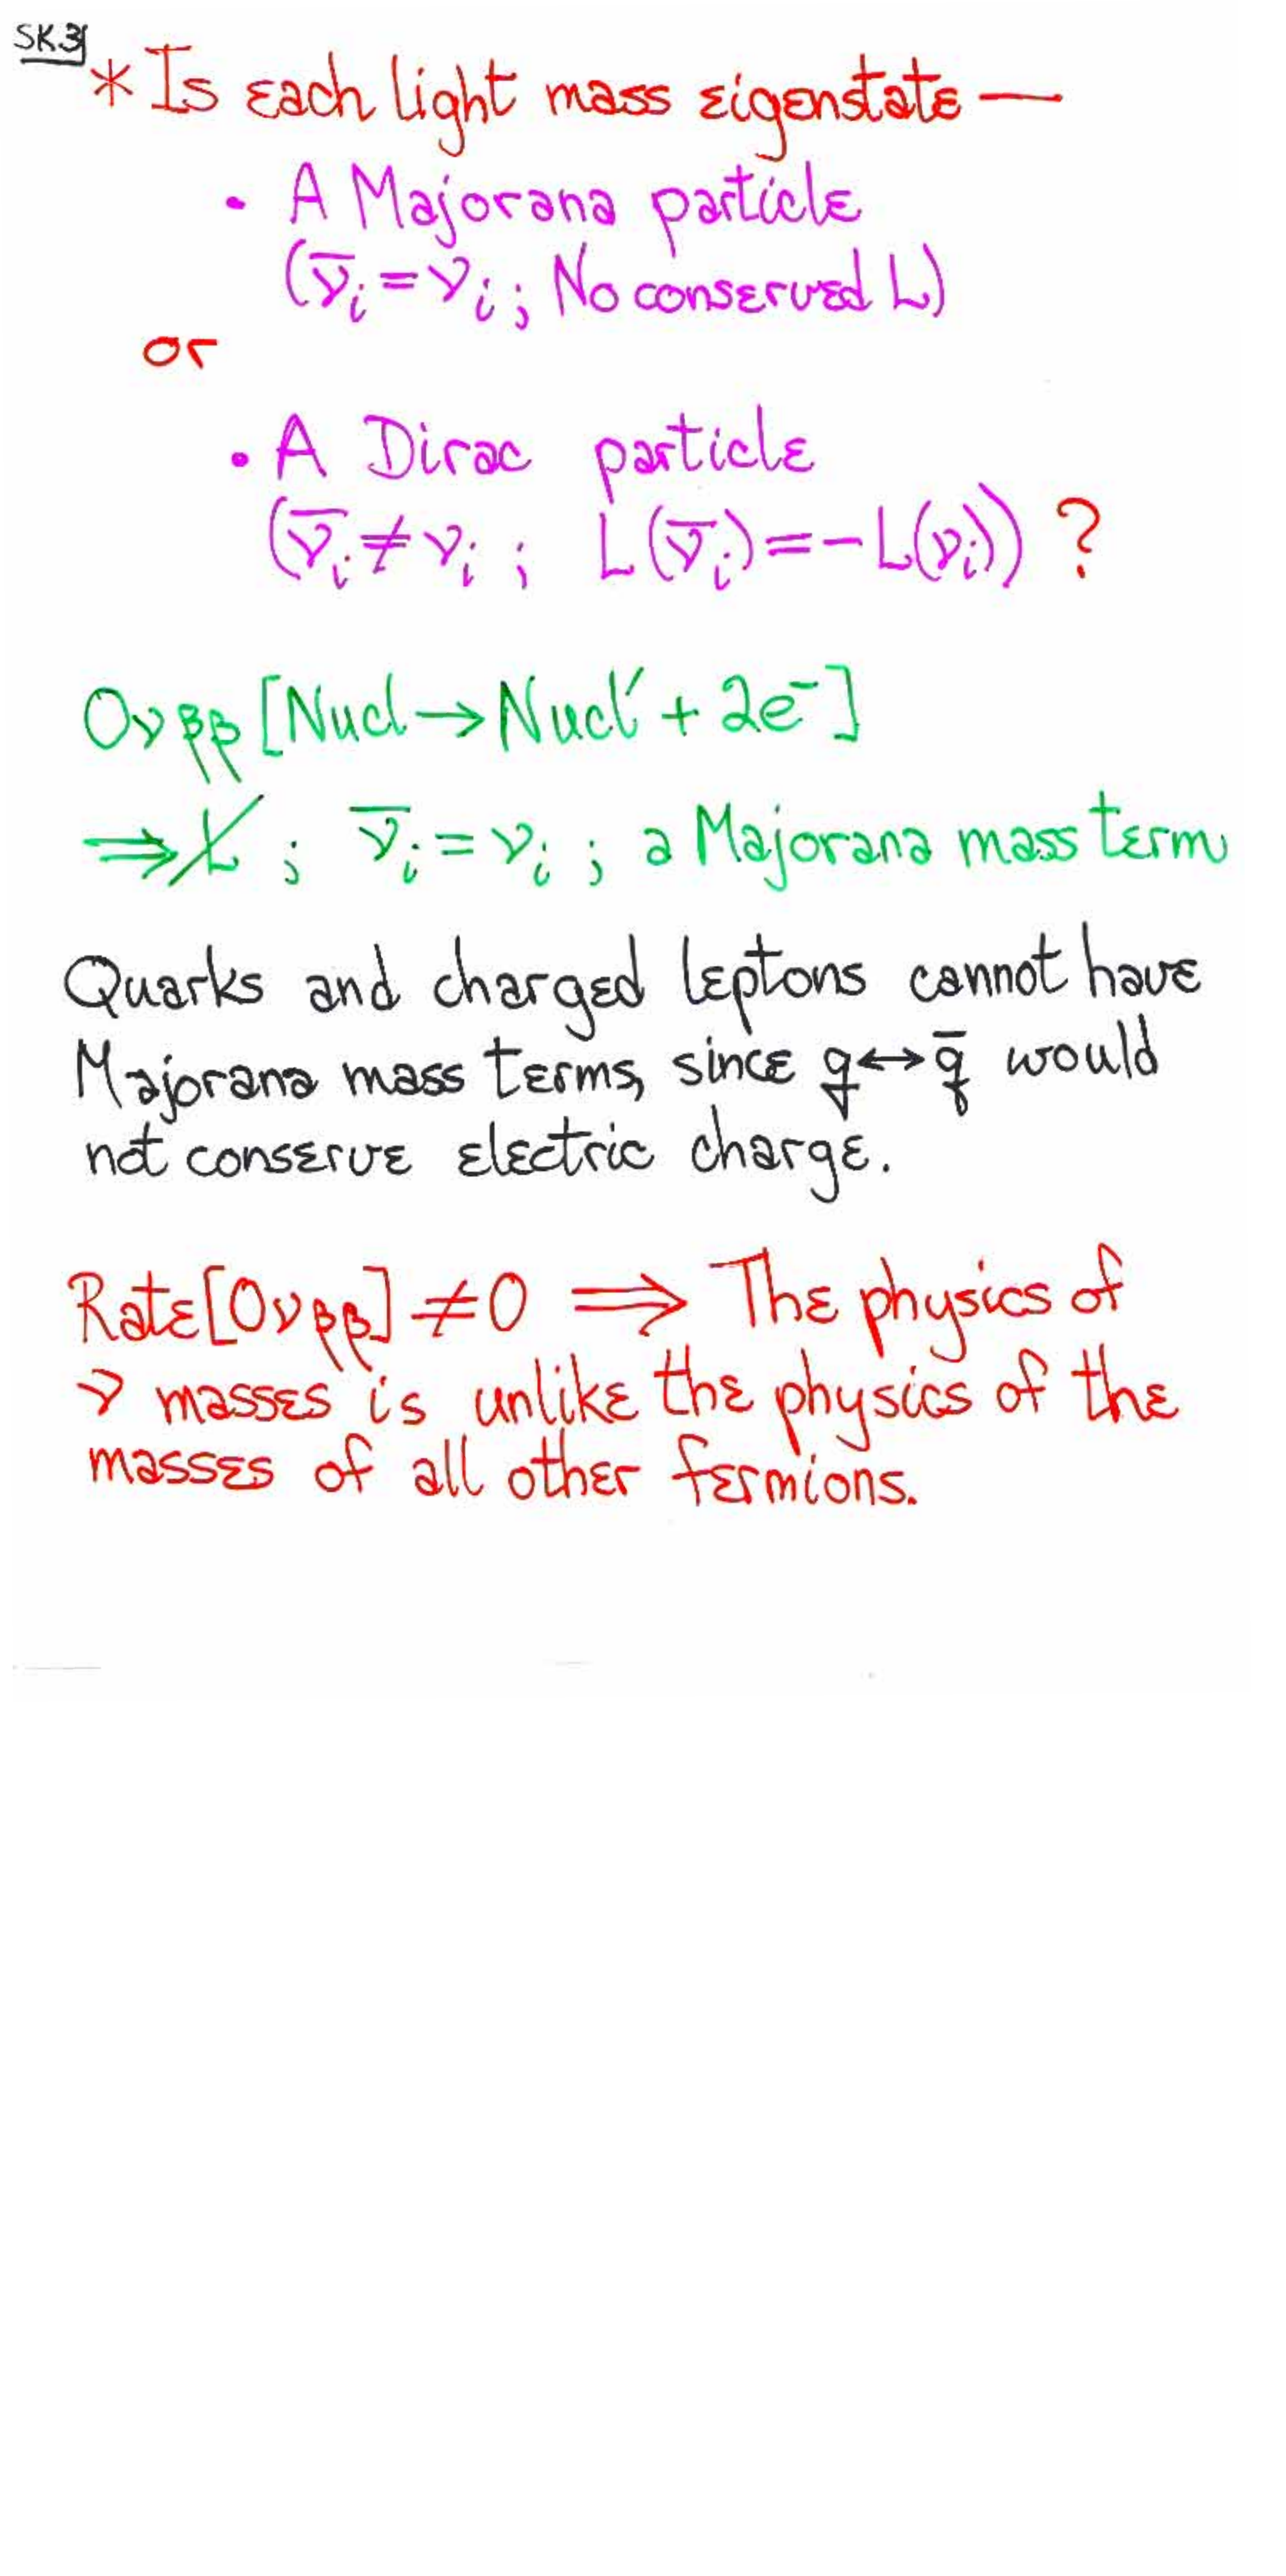 SK3
* Is each light mass eigenstate —
• A Majorana particle
(ν̄ᵢ = νᵢ ; No conserved L)
or
• A Dirac particle
(ν̄ᵢ ≠ νᵢ ; L(ν̄ᵢ) = -L(νᵢ)) ?
0νββ [Nucl → Nucl′ + 2e⁻]
⇒ L̸ ; ν̄ᵢ = νᵢ ; a Majorana mass term
Quarks and charged leptons cannot have
Majorana mass terms, since q ↔ q̄ would
not conserve electric charge.
Rate[0νββ] ≠ 0 ⇒ The physics of
ν masses is unlike the physics of the
masses of all other fermions.